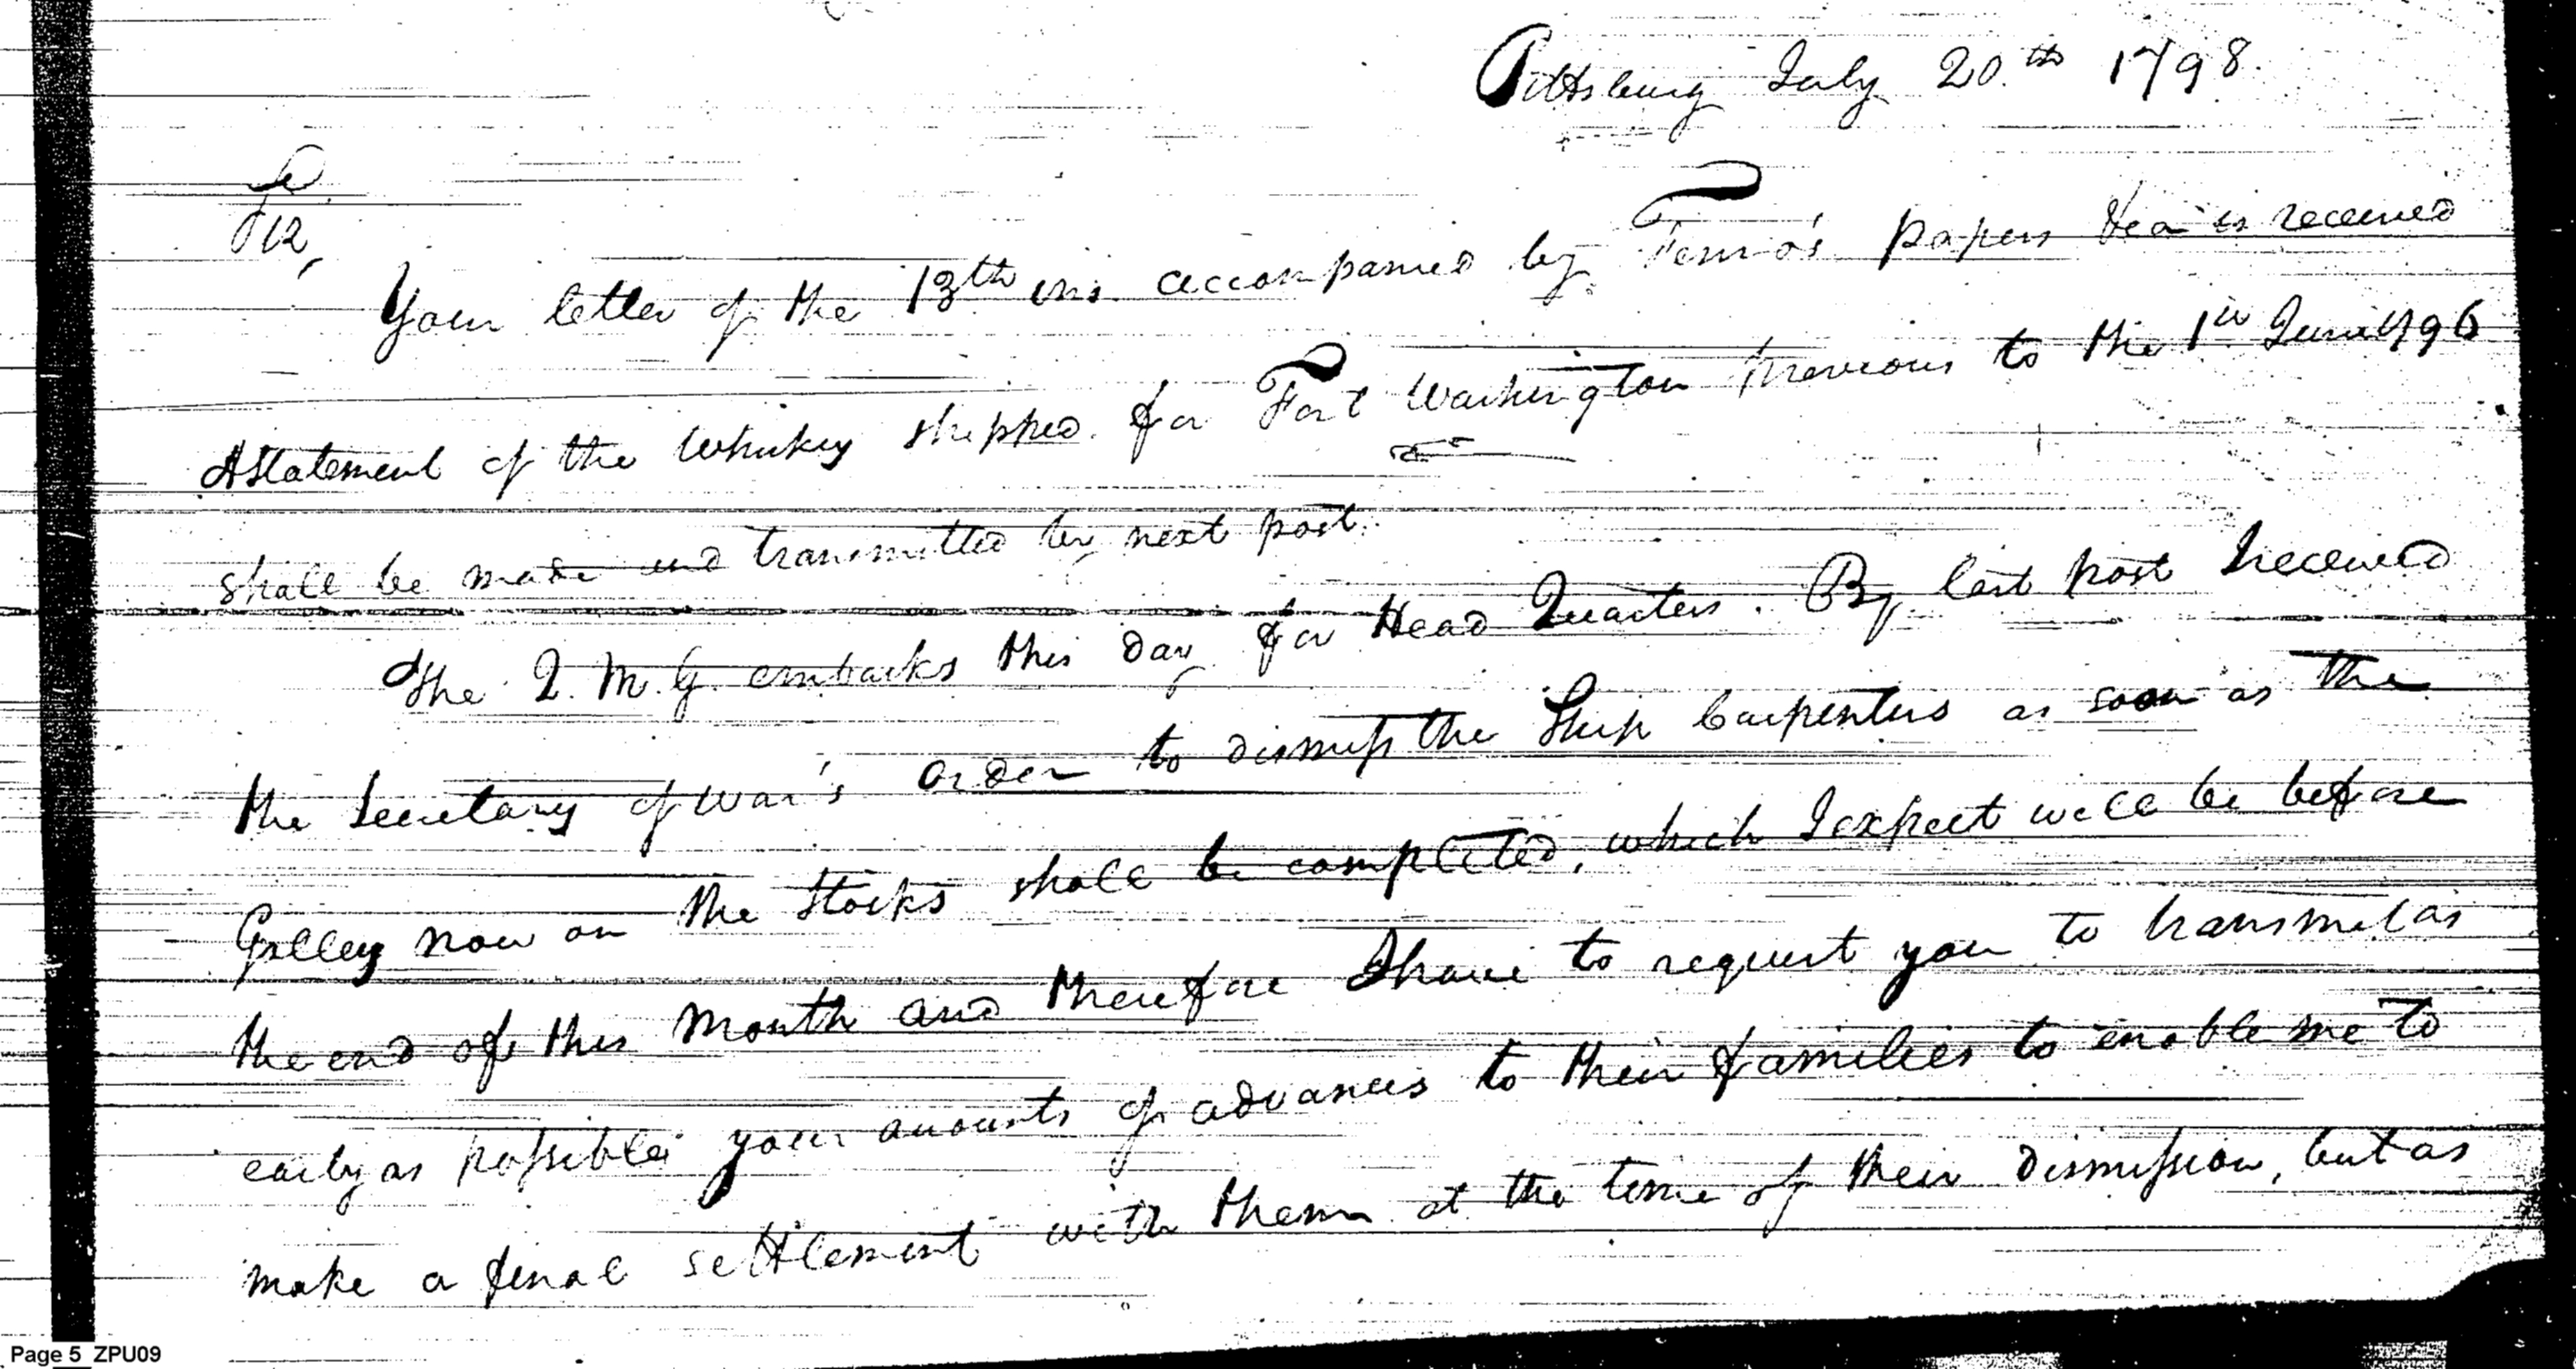 Pittsburg July 20th 1798.
Sir,
Your letter of the 13th ins. accompanied by Fenno's papers has received
A Statement of the Whiskey shipped for Fort Washington previous to the 1st June 1796
shall be made and transmitted by next post.
The Q. M. G. embarks this day for Head Quarters. By last post I received
the Secretary of War's order to dismiss the Ship Carpenters as soon as the
Galley now on the Stocks shall be completed, which I expect will be before
the end of this Month and therefore I have to request you to transmit as
early as possible your amounts of advances to their families to enable me to
make a final settlement with them at the time of their dismission, but as
Page 5 ZPU09